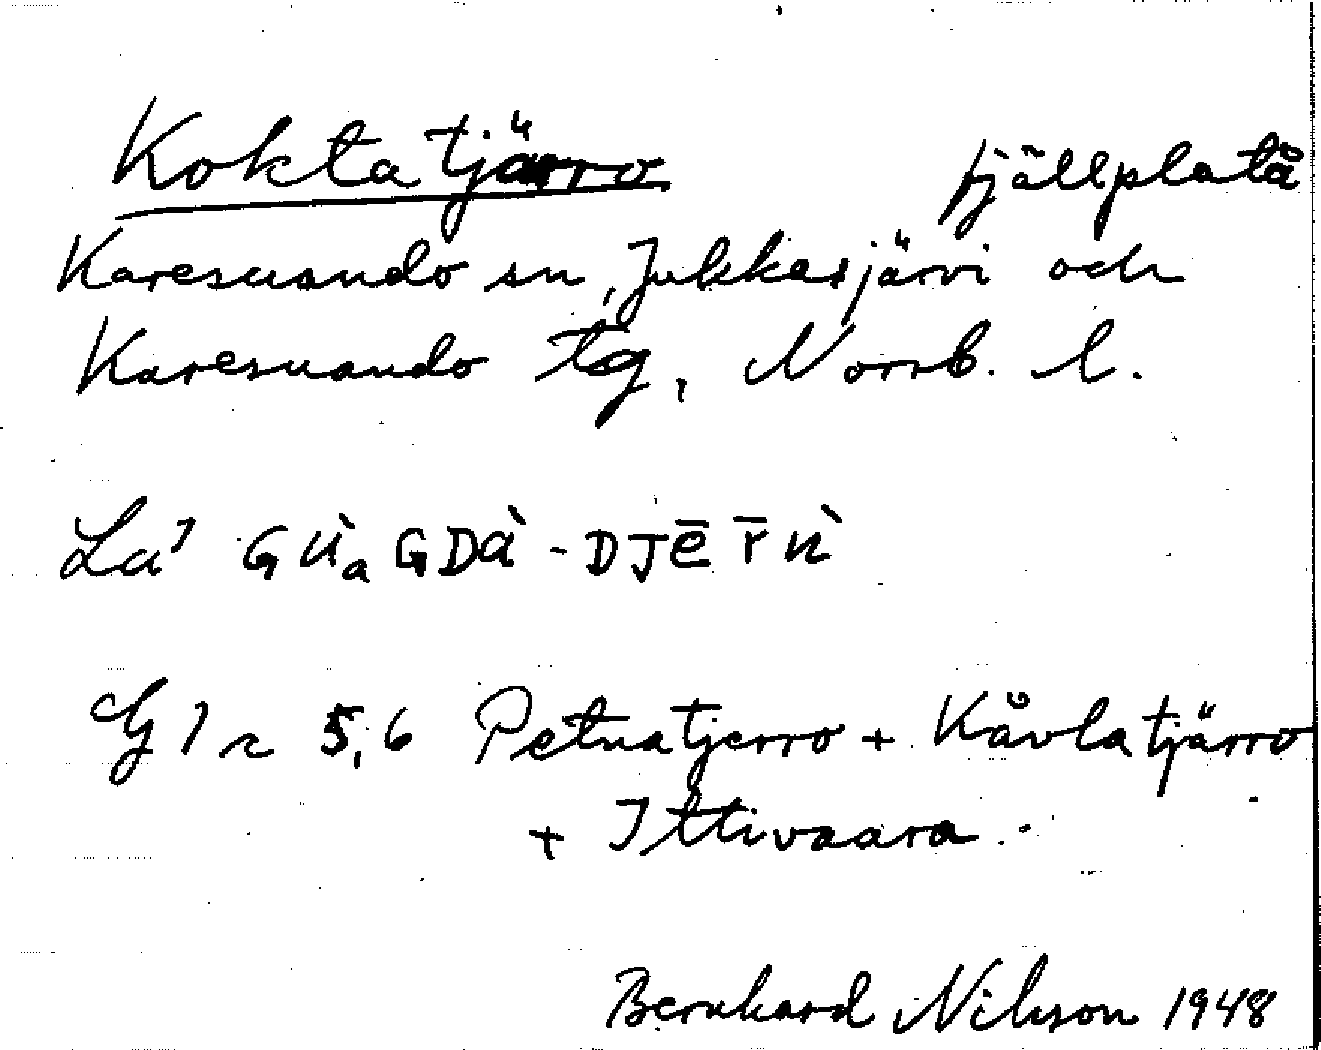 Koktatjärro fjällplatå
Karesuando sn, Jukkasjärvi och
Karesuando tg, Norrb. l.
La' GÙaGDÀ-DJĒR̄Ù
Gl 2 5,6 Petnatjerro + Kåvlatjärro
+ Ittivaara.
Bernhard Nilsson 1948